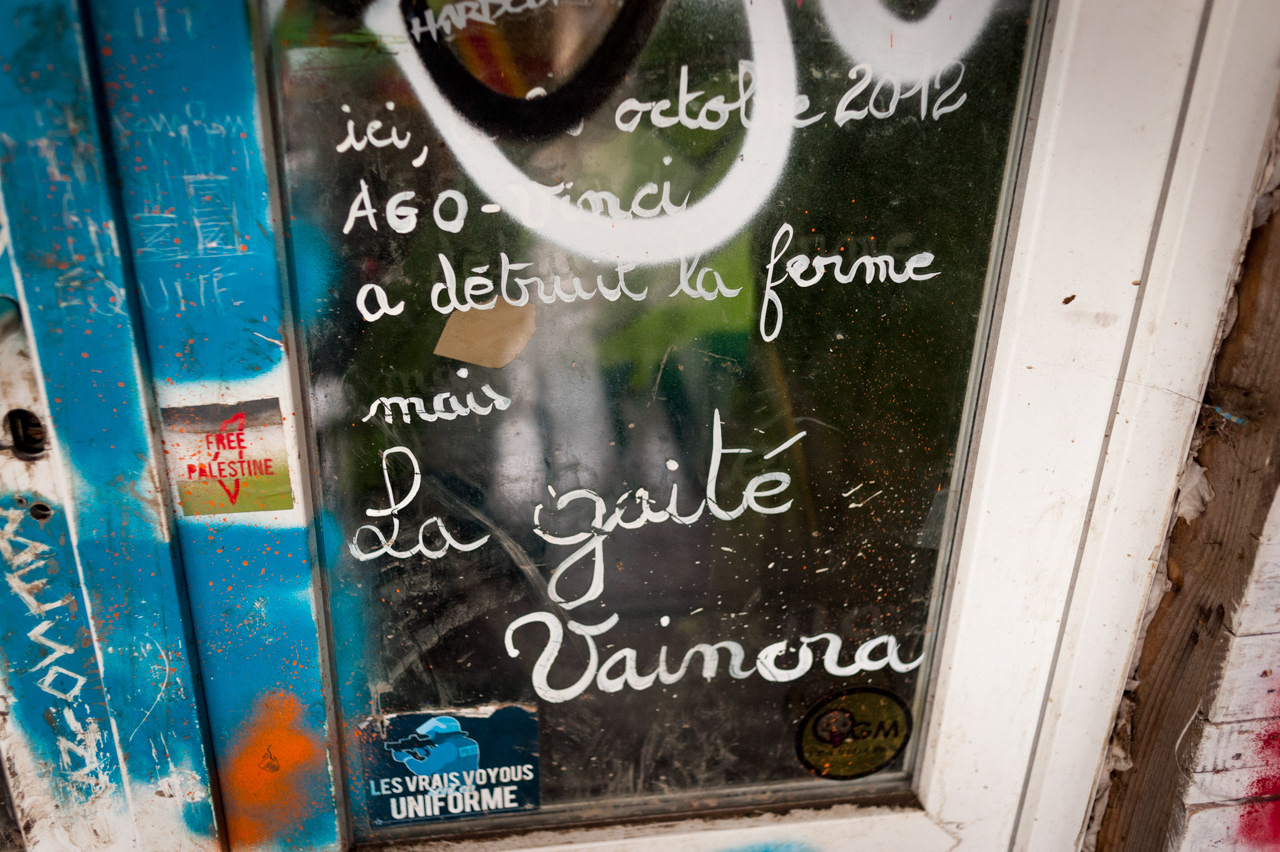 HARDCORE
ici, octobre 2012
AGO-Vinci
a détruit la ferme
mais
La gaité
Vaincra
FREE
PALESTINE
LES VRAIS VOYOUS
UNIFORME
OGM